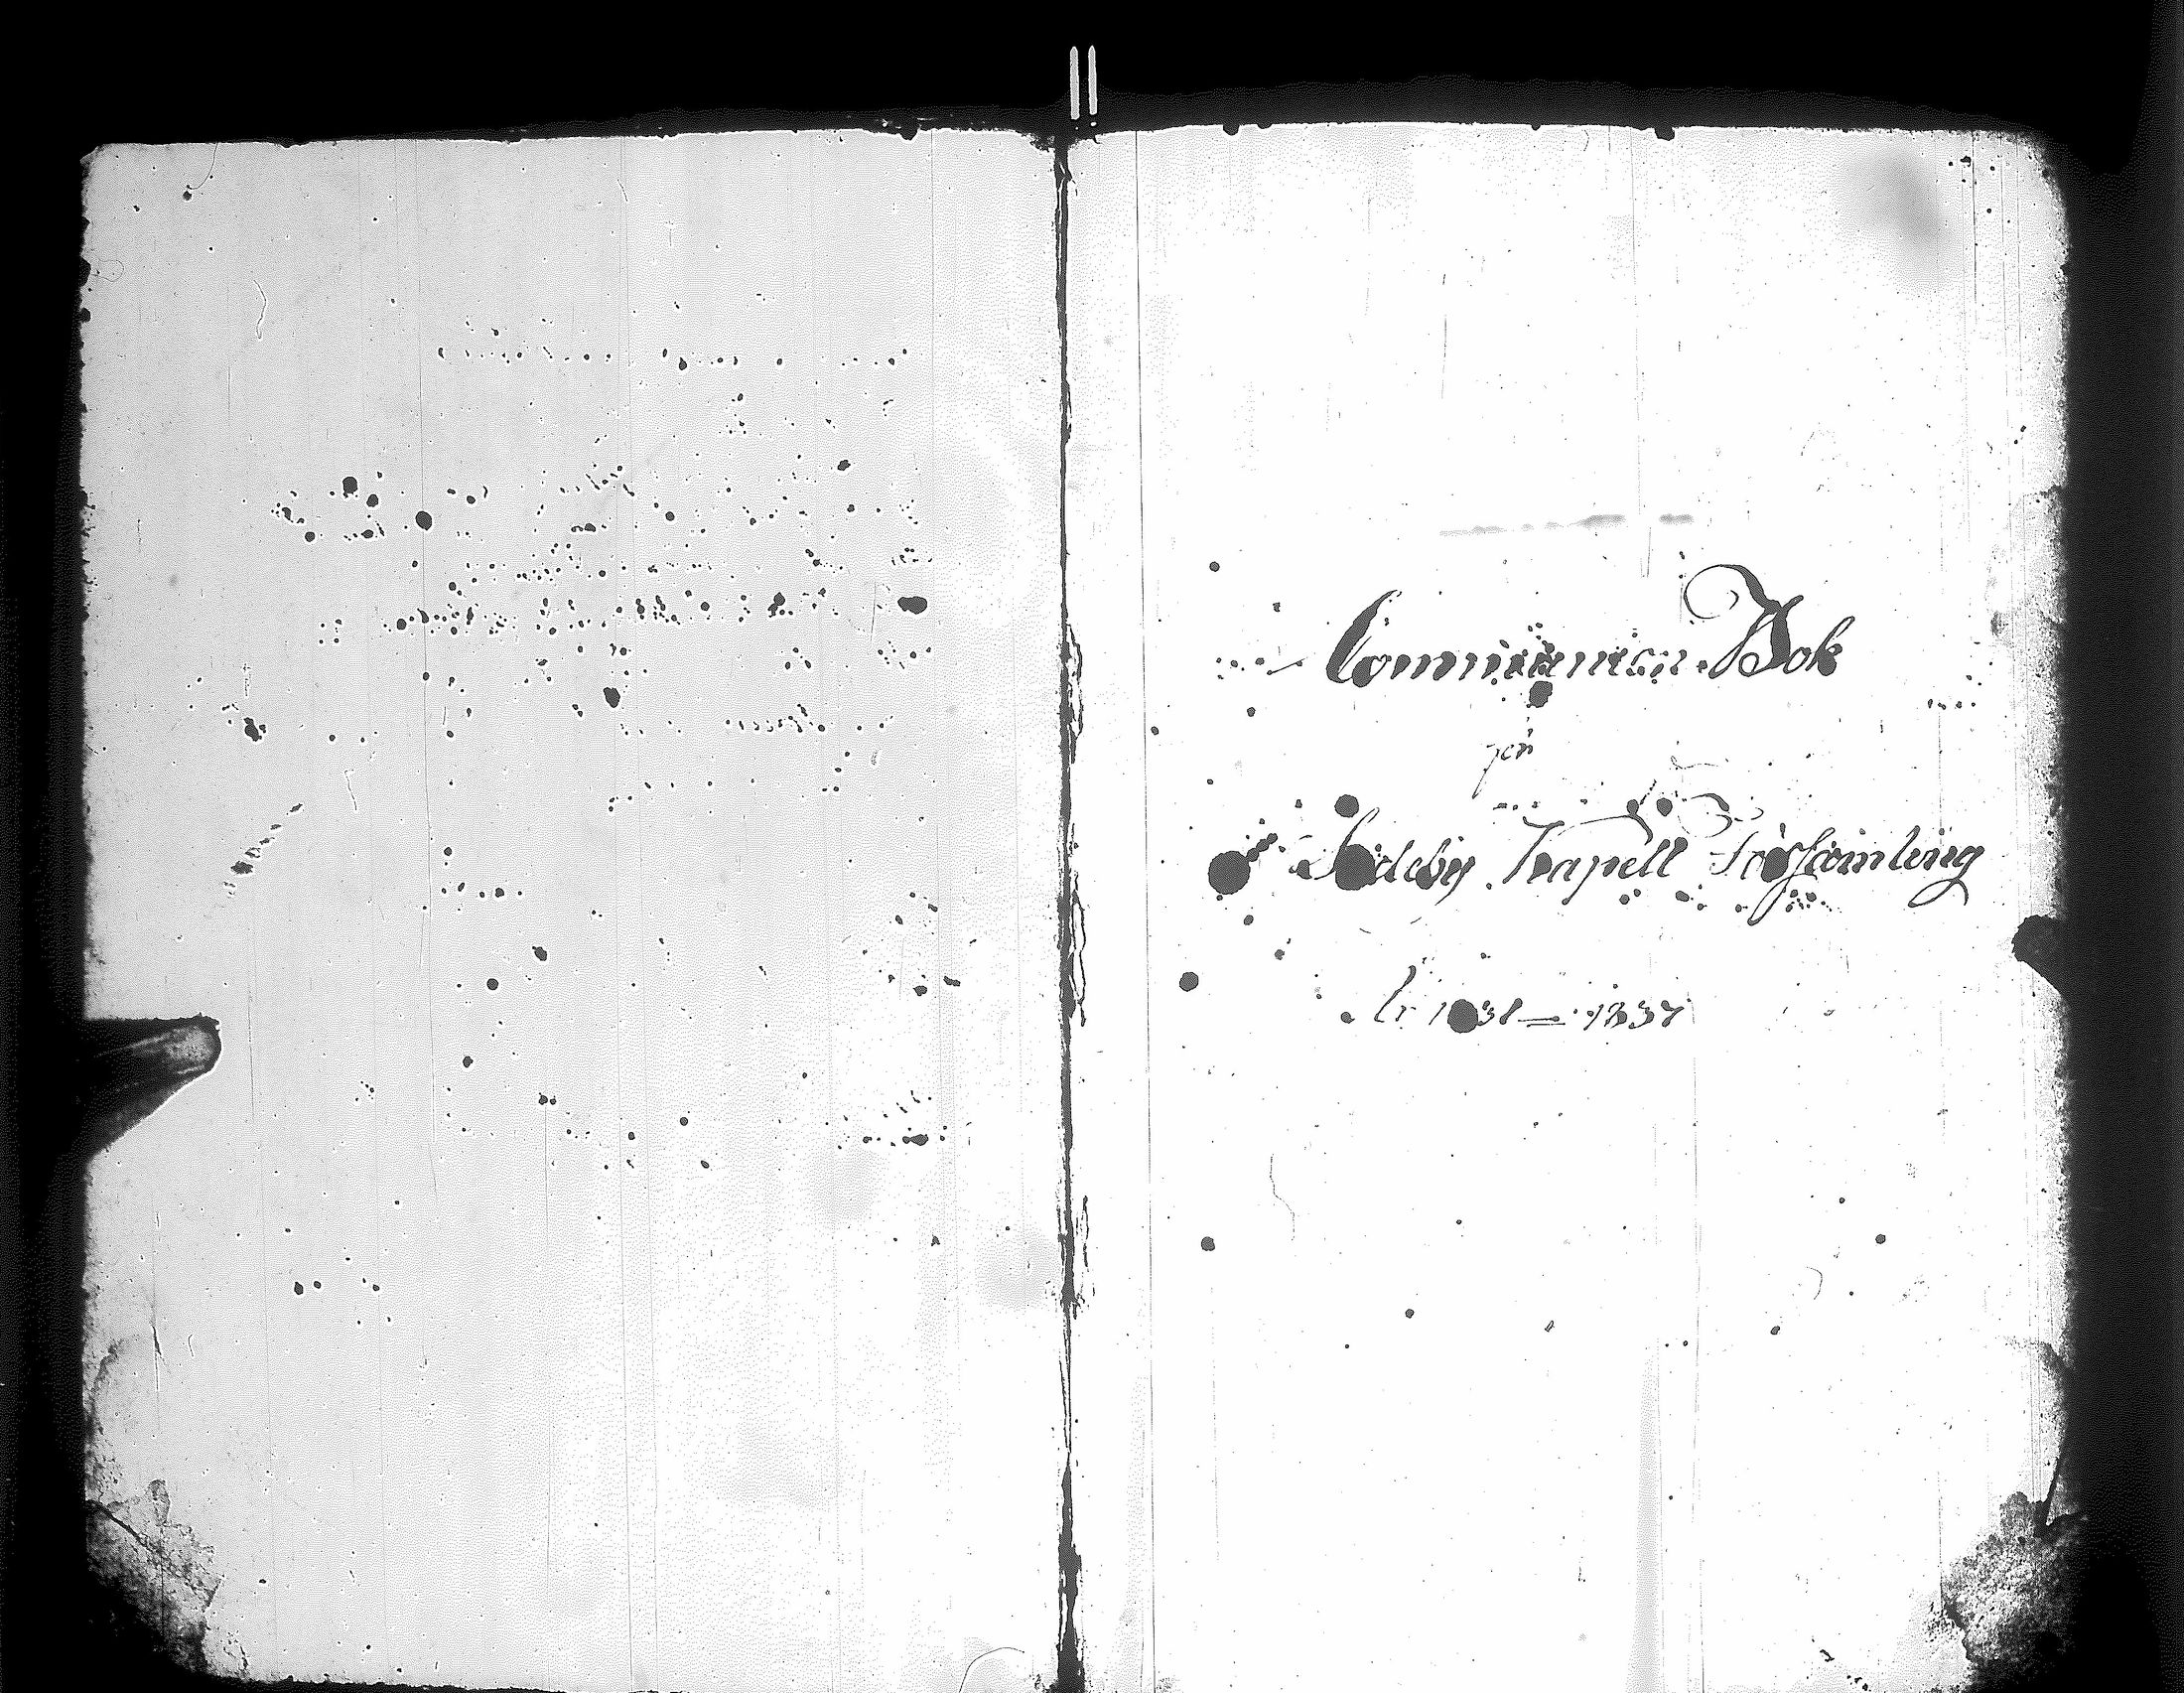 Communion Bok
för
Sideby Kapell Församling
år 1831 — 1837